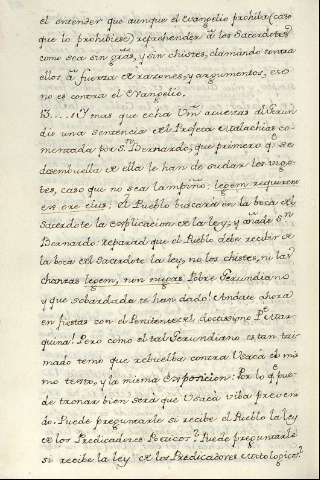 el entender que aunque el evangelio prohiba (caso
que lo prohibiese) reprehender à los Sacerdotes
como sea sin gras, y sin chistes, clamando contra
ellos à fuerza de razones, y argumentos, eso
no es contra el Evangelio.
13....Y mas que echa Vm acuestas al Gerun
dio una sentencia del Profeta Malachias co-
mentada por Sn Bernardo, que primero q se
desenvuelba de ella le han de sudar los vigo-
tes, caso que no sea lampiño: legem requirent
ex ore eius: el Pueblo buscarà en la boca del
Sacerdote la explicacion de la ley; y añade Sn
Bernardo: reparad que el Pueblo debe recibir de
la boca del Sacerdote la ley, no los chistes, ni las
chanzas legem, non nugas. Pobre Gerundiano
y que sobardada te han dado! Andate ahora
en fiestas con el Penitente del doctissimo Pe Mar
quina! Pero como el tal Gerundiano es tan tai-
mado temo que rebuelba contra Usaca el mis
mo texto, y la misma exposicion: Por lo q pue-
de tronar bien serà que Usaca viva preveni-
do. Puede preguntarle si recibe el Pueblo la ley
de los Predicadores Poeticos? Puede preguntarle
si recibe la ley de los Predicadores ontologicos?